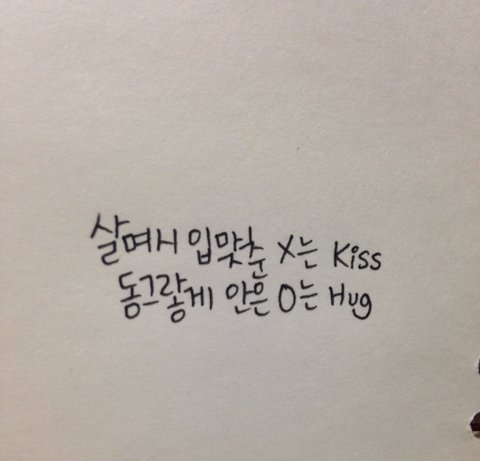 살며시 입맞춘 X는 Kiss
동그랗게 안은 O는 Hug